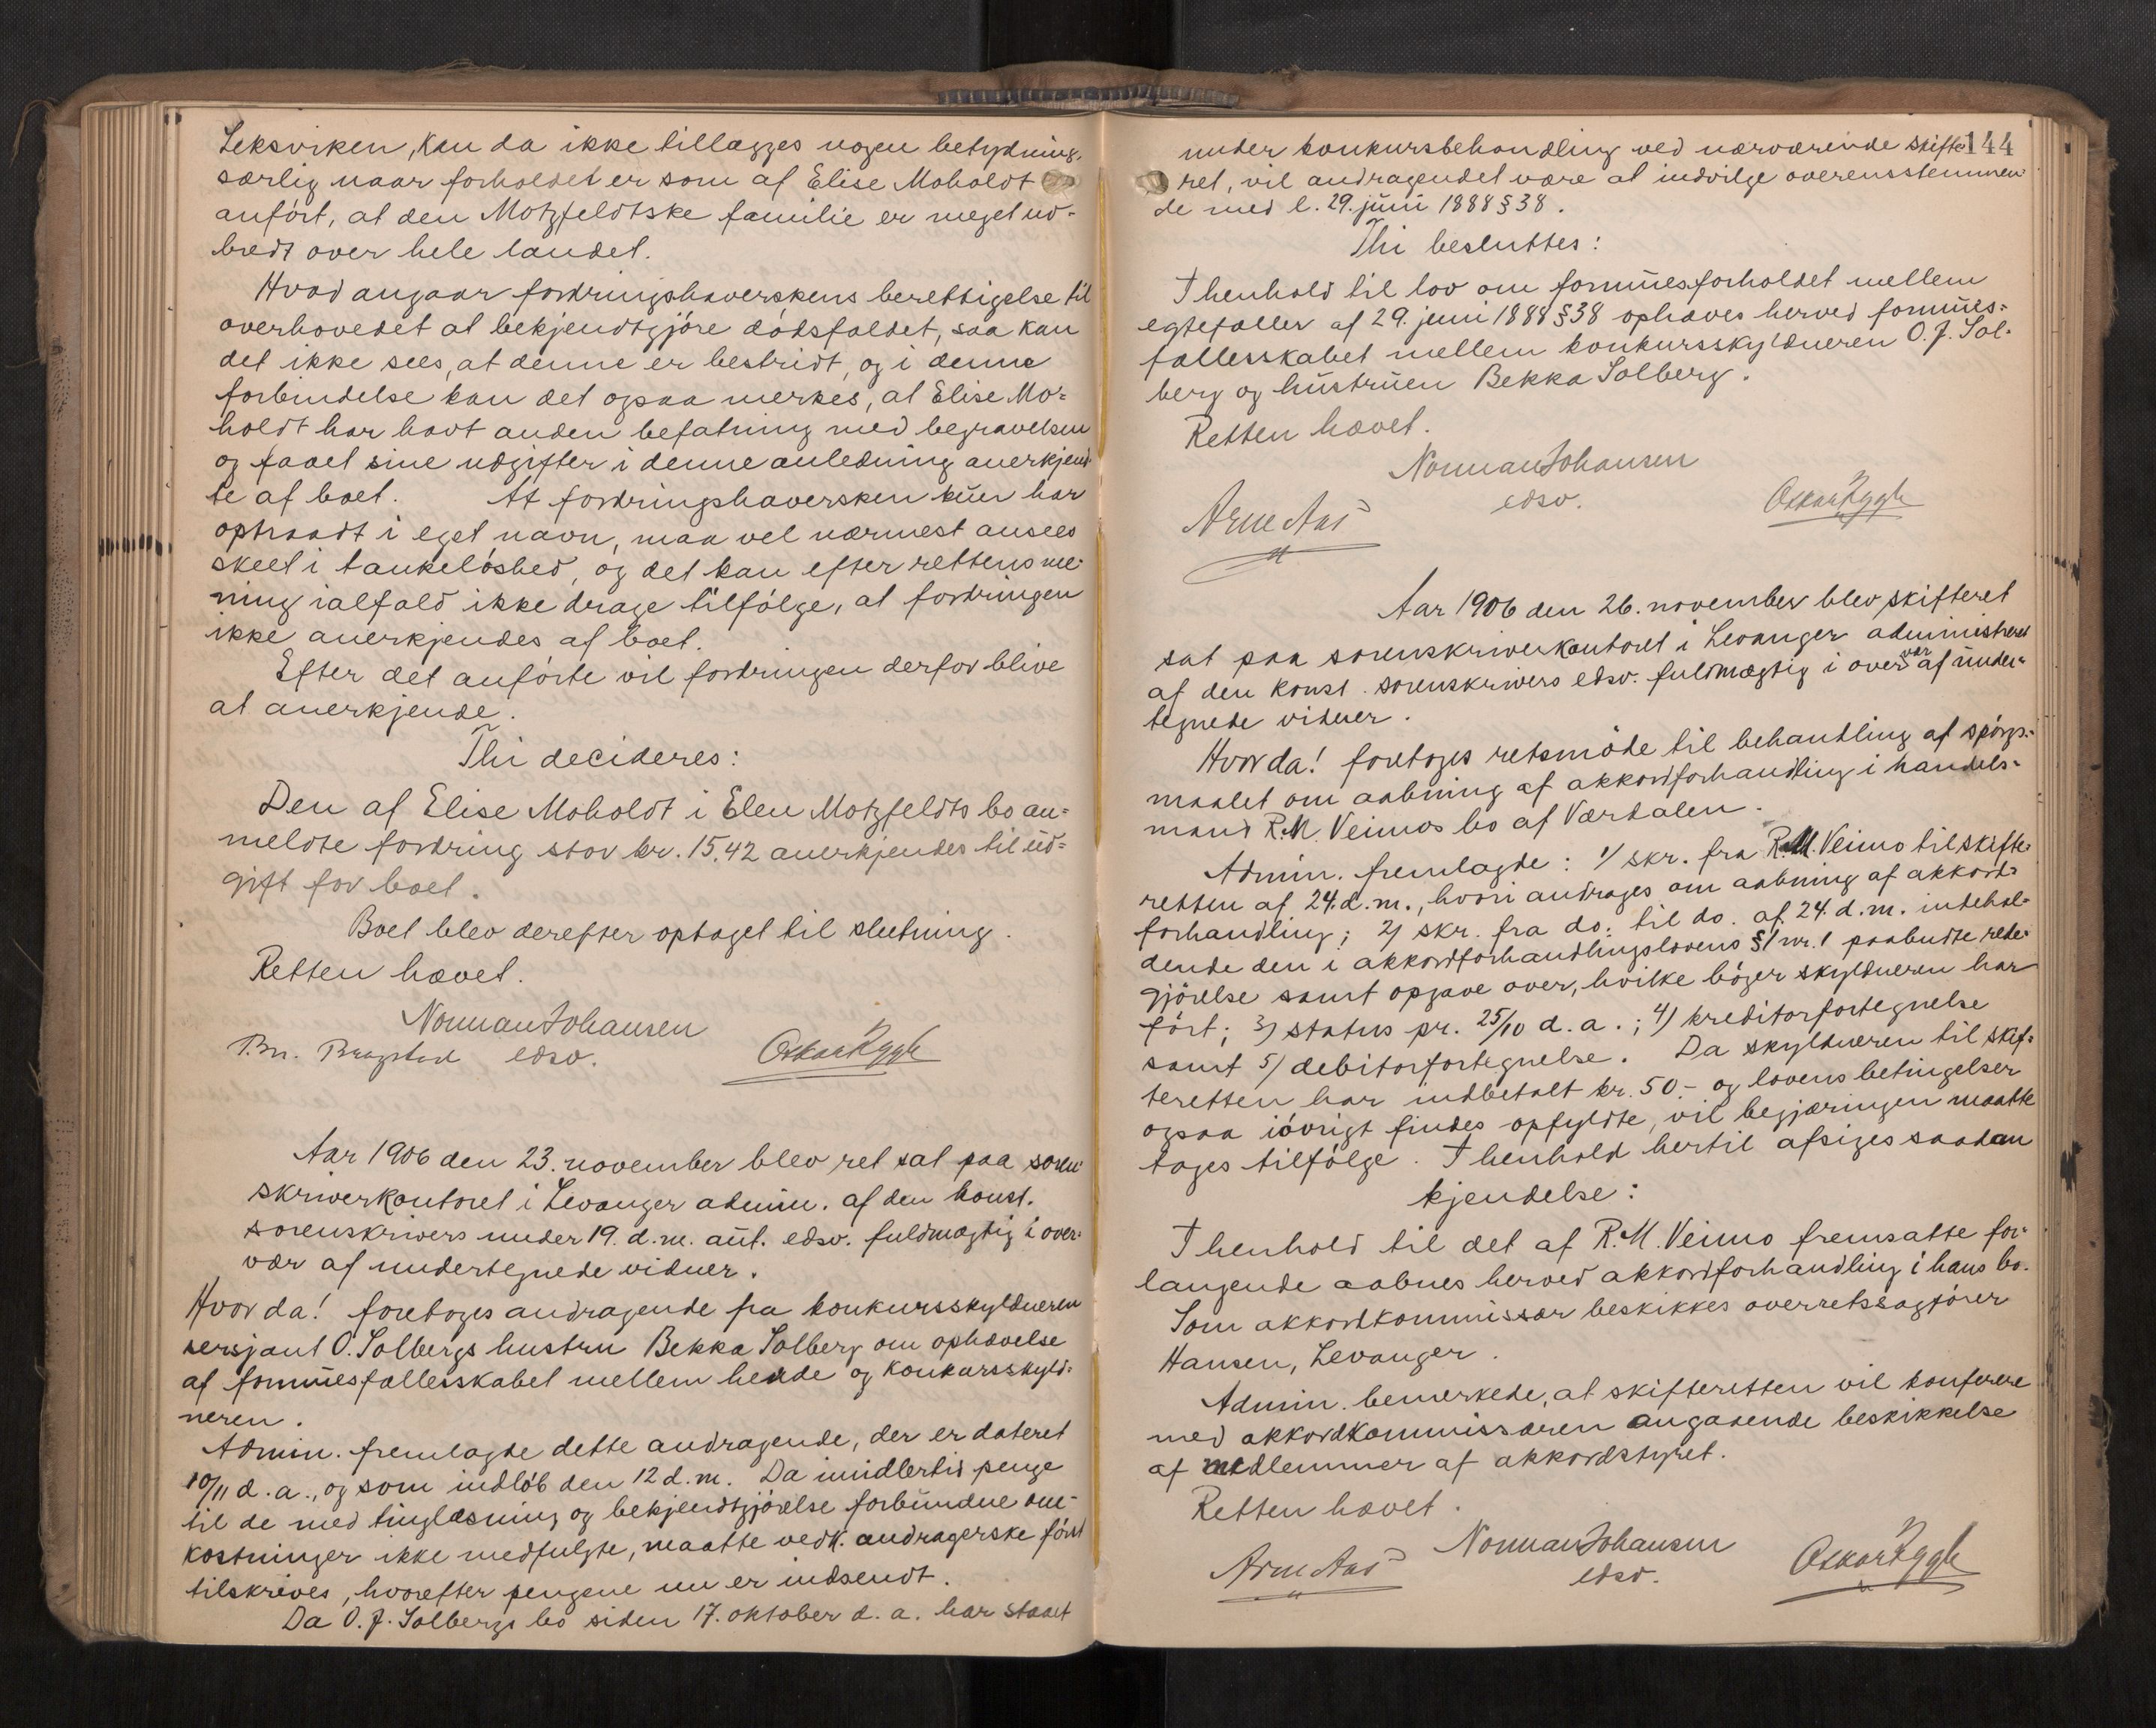 Leksviken, kan da ikke tillægges nogen betydning,
særlig naar forholdet er som af Elise Moholdt
anført, at den Motzfeldtske familie er meget ud-
bredt over hele landet.
Hvad angaar fordringshaverskens berettigelse til
overhovedet at bekjendtgjøre dødsfaldet, saa kan
det ikke sees, at denne er bestridt, og i denne
forbindelse kan det ogsaa merkes, at Elise Mo-
holdt har havt anden befatning med begravelsen
og faaet sine udgifter i denne anledning anerkjend-
te af boet. At fordringshaversken kun har
optraadt i eget navn, maa vel nærmest ansees
skeet i tankeløshed, og det kan efter rettens me-
ning ialfald ikke drage tilfølge, at fordringen
ikke anerkjendes af boet.
Efter det anførte vil fordringen derfor blive
at anerkjende.
Thi decideres:
Den af Elise Moholdt i Elen Motzfeldts bo an-
meldte fordring stor kr. 15.42 anerkjendes til ud-
gift for boet.
Boet blev derefter optaget til slutning.
Retten hævet.
Norman Johansen
P.M. Bragstad edsv. Oskar Rygh
Aar 1906 den 23. november blev ret sat paa soren-
skriverkontoret i Levanger admin. af den konst.
sorenskrivers under 19. d.m. aut. edsv. fuldmægtig i over-
vær af undertegnede vidner.
Hvor da! foretoges andragende fra konkursskyldneren
sersjant O. Solbergs hustru Bekka Solberg om ophævelse
af formuesfællesskabet mellem hende og konkursskyld-
neren.
Admin. fremlagde dette andragende, der er dateret
10/11 d.a., og som indløb den 12 d.m. Da imidlertid penge
til de med tinglæsning og bekjendtgjørelse forbundne om-
kostninger ikke medfulgte, maatte vedk. andragerske først
tilskrives, hvorefter pengene nu er indsendt.
Da O.J. Solbergs bo siden 17. oktober d.a. har staaet
144
under konkursbehandling ved nærværende skifte-
ret, vil andragendet være at indvilge overensstemmen-
de med l. 29. juni 1888 § 38.
Thi besluttes:
I henhold til lov om formuesforholdet mellem
egtefæller af 29. juni 1888 § 38 ophæves herved formues-
fællesskabet mellem konkursskyldneren O.J. Sol-
berg og hustruen Bekka Solberg.
Retten hævet.
Norman Johansen
Arne Aas edsv. Oskar Rygh
Aar 1906 den 26. november blev skifteret
sat paa sorenskriverkontoret i Levanger administreret
af den konst. sorenskrivers edsv. fuldmægtig i overvær af under-
tegnede vidner.
Hvor da! foretoges retsmøde til behandling af spørgs-
maalet om aabning af akkordforhandling i handels-
mand R.M. Veimos bo af Værdalen.
Admin. fremlagde: 1/ skr. fra R.M. Veimo til skifte-
retten af 24. d.m., hvori andrages om aabning af akkord-
forhandling; 2/ skr. fra do. til do. af 24. d.m. indehol-
dende den i akkordforhandlingslovens § 1 nr. 1 paabudte rede-
gjørelse samt opgave over, hvilke bøger skyldneren har
ført; 3/ status pr. 25/10 d.a.; 4/ kreditorfortegnelse
samt 5/ debitorfortegnelse. Da skyldneren til skif-
teretten har indbetalt kr. 50.- og lovens betingelser
ogsaa iøvrigt findes opfyldte, vil begjæringen maatte
tages tilfølge. I henhold hertil afsiges saadan
kjendelse:
I henhold til det af R.M. Veimo fremsatte for-
langende aabnes herved akkordforhandling i hans bo.
Som akkordkommissær beskikkes overretssagfører
Hansen, Levanger.
Admin. bemerkede, at skifteretten vil konferere
med akkordkommissæren angaaende beskikkelse
af medlemmer af akkordstyret.
Retten hævet.
Norman Johansen
Arne Aas edsv. Oskar Rygh